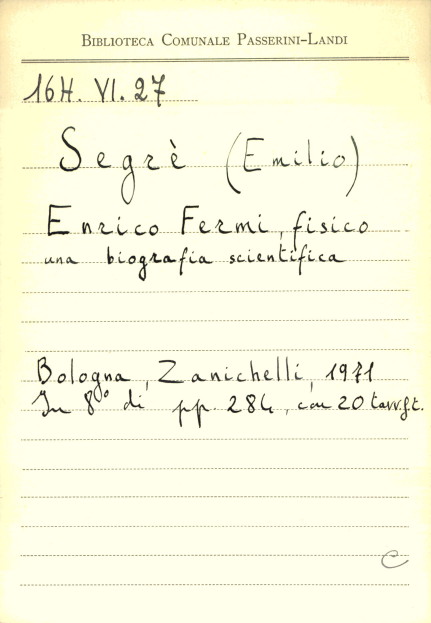 BIBLIOTECA COMUNALE PASSERINI-LANDI
16H. VI. 27
Segrè (Emilio)
Enrico Fermi, fisico
una biografia scientifica
Bologna, Zanichelli, 1971
In 8° di pp. 284, con 20 tavv.f.t.
C